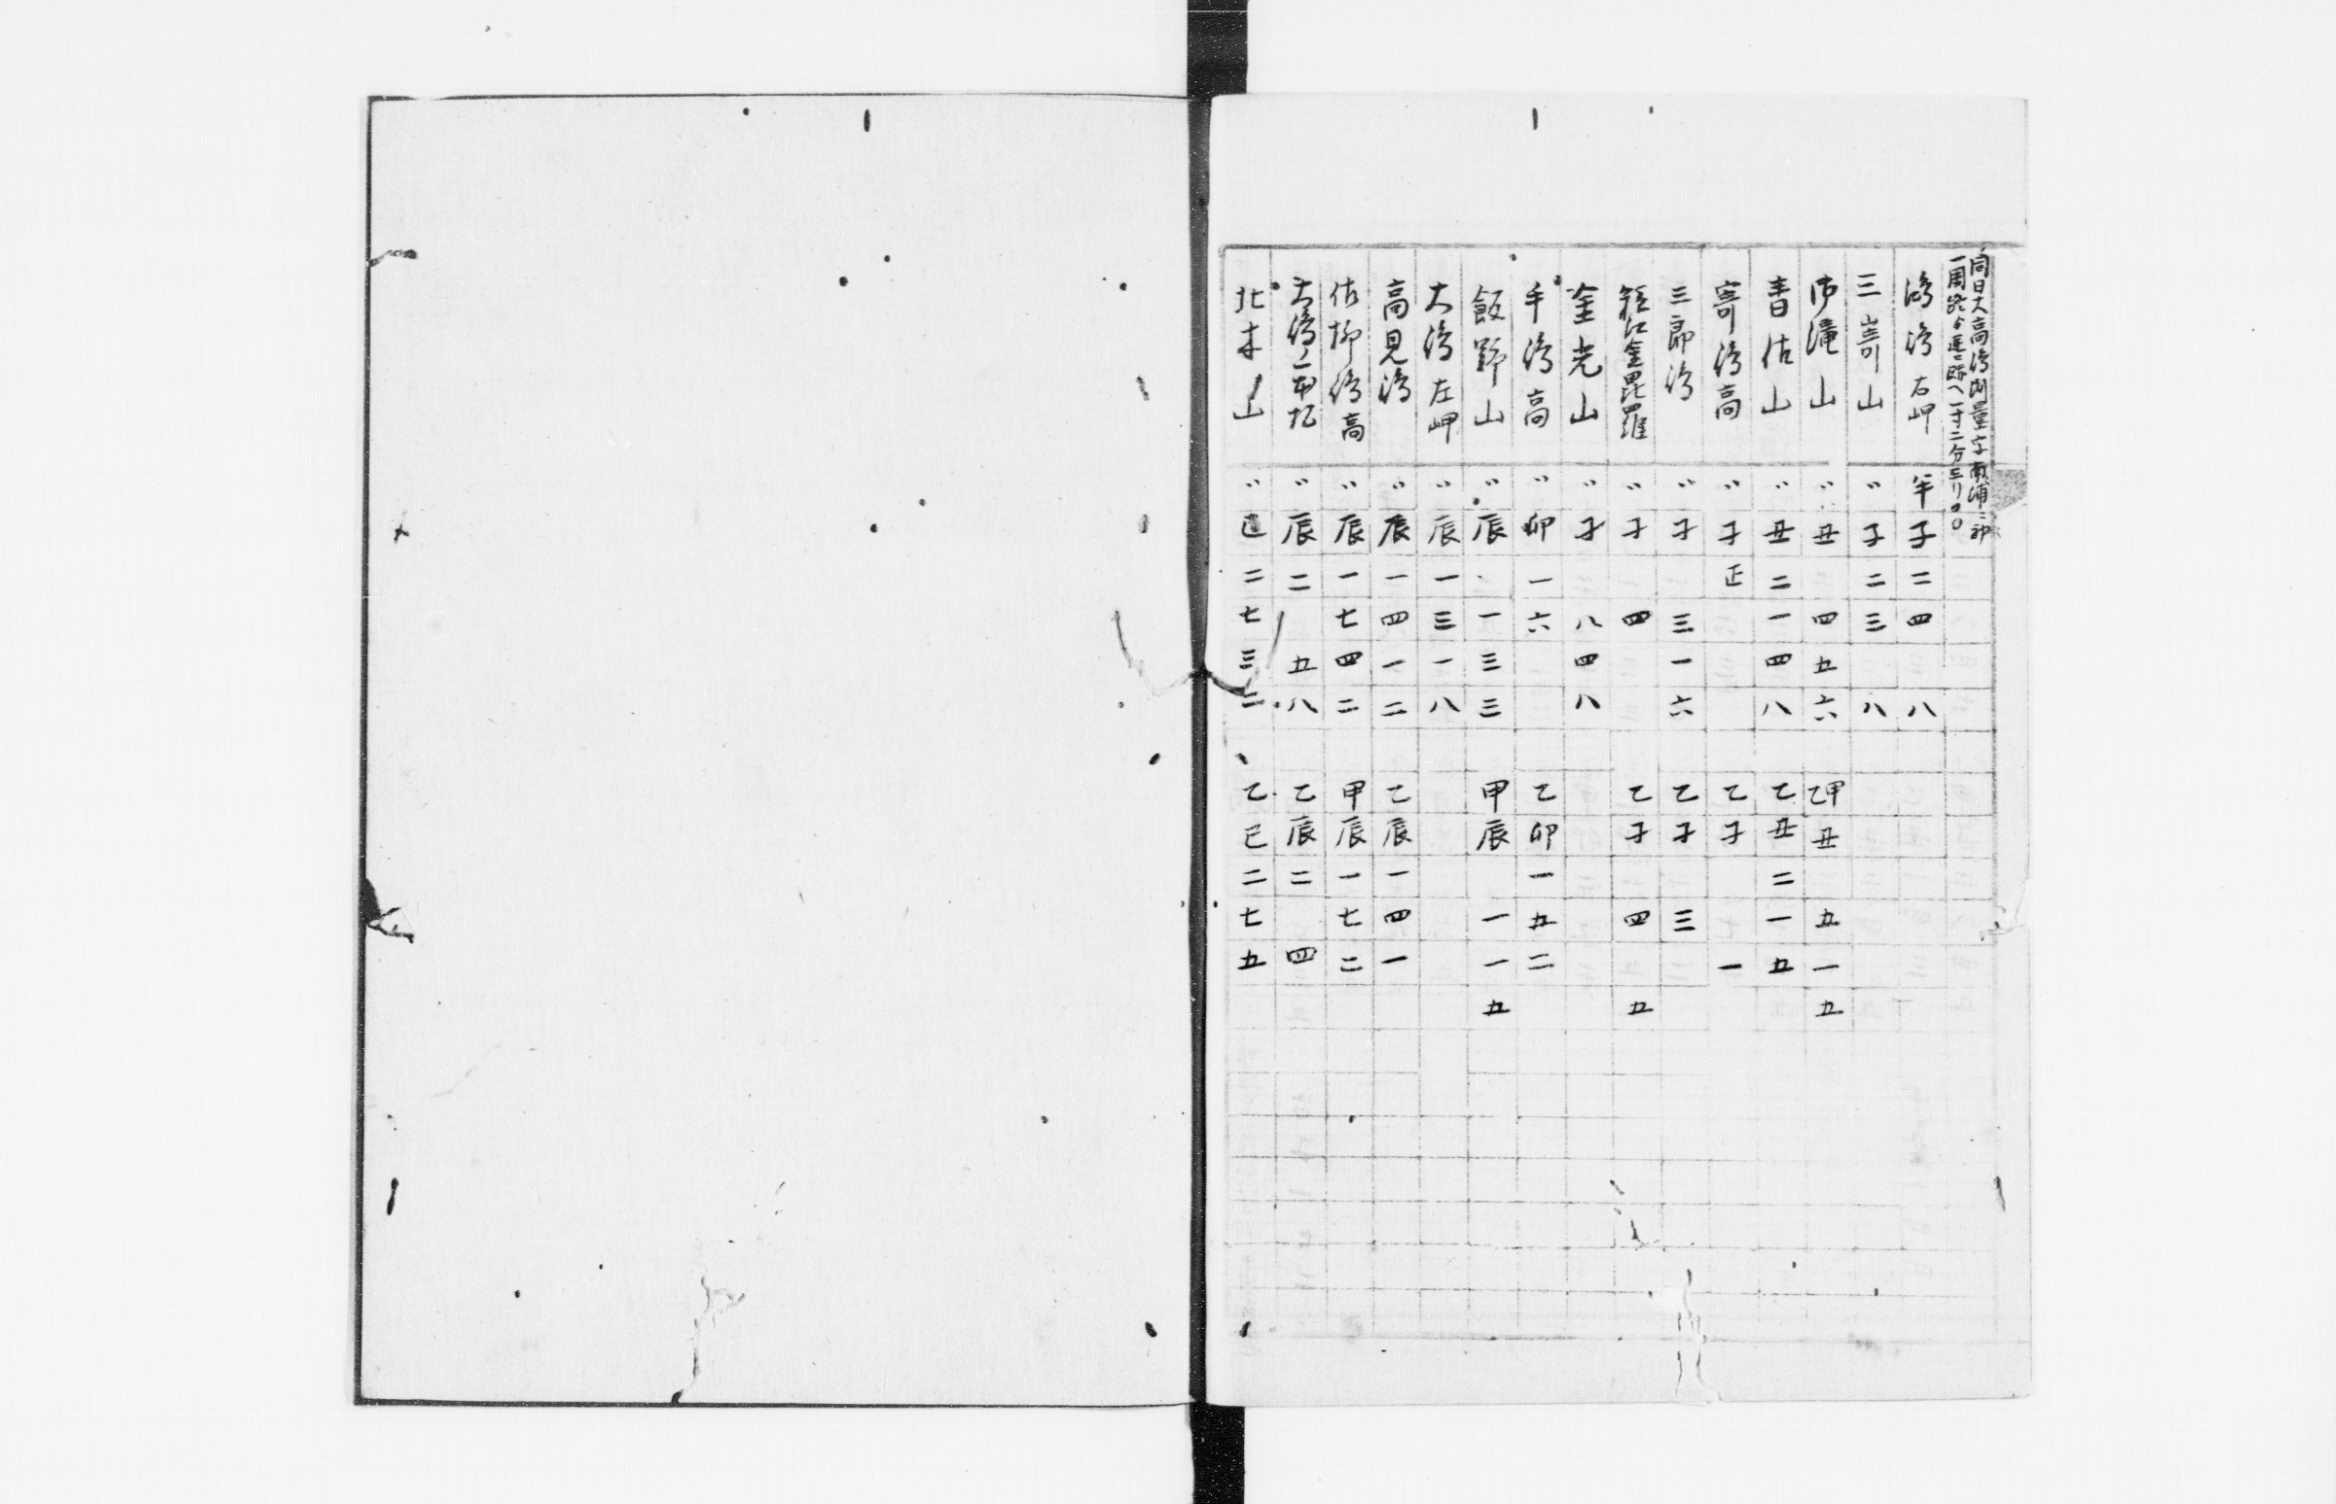 同日大高島測量字南浦ニ
一周路ゟ一寸二分三リ〇〇
鴻島右岬 半子二四八
三嵜山 〃子二三八
滝山 〃丑四五六 甲乙丑五一五
春佐山 〃丑二一四八 乙丑二一五
寄島高 〃子正 乙子一
三郎島 〃子三一六 乙子三
金毘羅 〃子四 乙子四五
金光山 〃子八四八
手島高 〃卯一六 乙卯一五二
飯野山 〃辰一三三 甲辰一一五
大島左岬 〃辰一三一八
高見島 〃辰一四一二 乙辰一四一
佐柳島高 〃辰一七四二 甲辰一七二
大島ノ 〃辰二五八 乙辰二四
北木山 〃巳二七三二 乙巳二七五